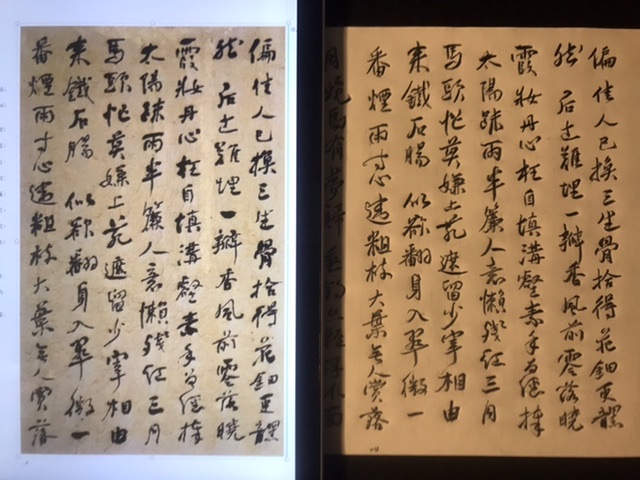 偏佳人已換三生骨拾得花鈿更黯
然 后土難埋一瓣香風前零落曉
霞妝丹心枉自填溝壑素手曾經捧
太陽疏雨半簾人意懶殘紅三月
馬頭忙莫嫌上苑遮留少宰相由
來鐵石腸 似欲翻身入翠微一
番煙雨寸心違粗枝大葉無人賞落
偏佳人已換三生骨拾得花鈿更黯
然 后土難埋一瓣香風前零落曉
霞妝丹心枉自填溝壑素手曾經捧
太陽疏雨半簾人意懶殘紅三月
馬頭忙莫嫌上苑遮留少宰相由
來鐵石腸 似欲翻身入翠微一
番煙雨寸心違粗枝大葉無人賞落